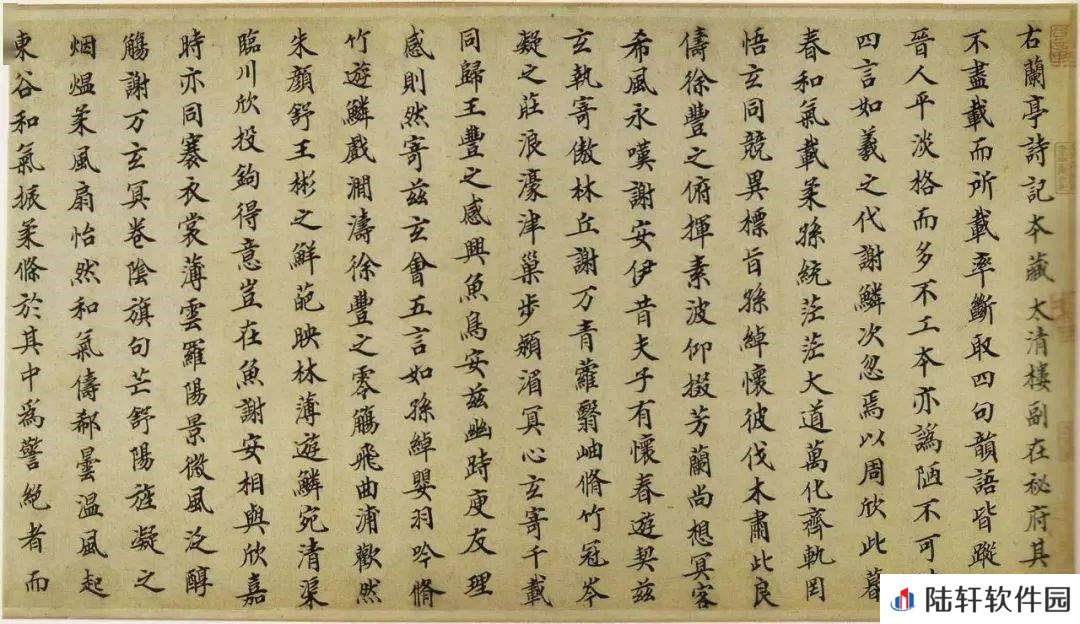 右蘭亭詩記本藏太清樓副在秘府其
不盡載而所載率斷取四句韻語皆蹤
晉人平淡格而多不工本亦譌陋不可
四言如羲之代謝鱗次忽焉以周欣此暮
春和氣載柔孫統茫茫大道萬化齊軌罔
悟玄同競異標旨孫綽懷彼伐木肅此良
儔徐豐之俯揮素波仰掇芳蘭尚想冥客
希風永嘆謝安伊昔夫子有懷春遊契茲
玄執寄傲林丘謝万青蘿翳岫脩竹冠岑
凝之莊浪濠津巢步潁湄冥心玄寄千載
同歸王豐之感興魚鳥安茲幽時庾友理
感則然寄茲玄會五言如孫綽嬰羽吟脩
竹遊鱗戲澗濤徐豐之零觴飛曲浦歡然
朱顏舒王彬之鮮葩映林薄遊鱗宛清渠
臨川欣投鉤得意豈在魚謝安相與欣嘉
時亦同褰衣裳薄雲羅陽景微風泛醇
觴謝万玄冥卷陰旗句芒舒陽旌凝之
烟熅柔風扇怡然和氣儔郗曇温風起
東谷和氣振柔條於其中為警絕者而
陆轩软件园